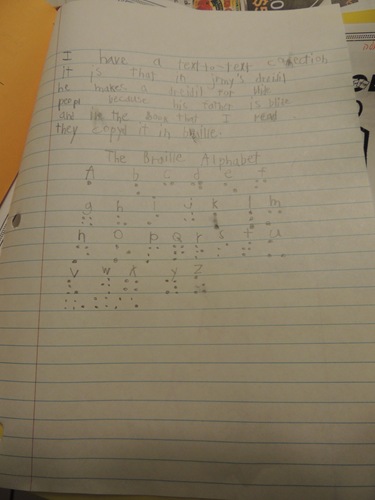 I have a text-to-text conection
it is that in jerry's dreidel
he makes a dreidil for
peopl because his father is
and the book that I read
they copyd it in braille.
The Braille Alphabet
A b c d e f
g h i j k l m
n o p Q r s t u
v w x y z